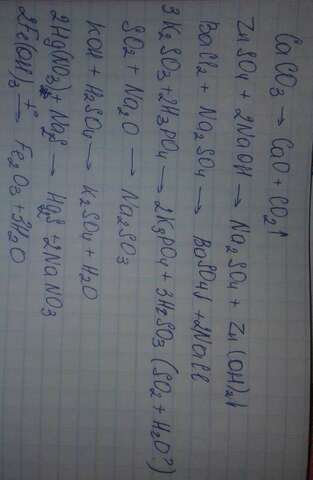 CaCO₃ → CaO + CO₂↑
ZnSO₄ + 2NaOH → Na₂SO₄ + Zn(OH)₂↓
BaCl₂ + Na₂SO₄ → BaSO₄↓ + 2NaCl
3K₂SO₃ + 2H₃PO₄ → 2K₃PO₄ + 3H₂SO₃ (SO₂ + H₂O?)
SO₂ + Na₂O → Na₂SO₃
KOH + H₂SO₄ → K₂SO₄ + H₂O
2Hg(NO₃) + Na₂S → Hg₂S + 2NaNO₃
2Fe(OH)₃ →t° Fe₂O₃ + 3H₂O